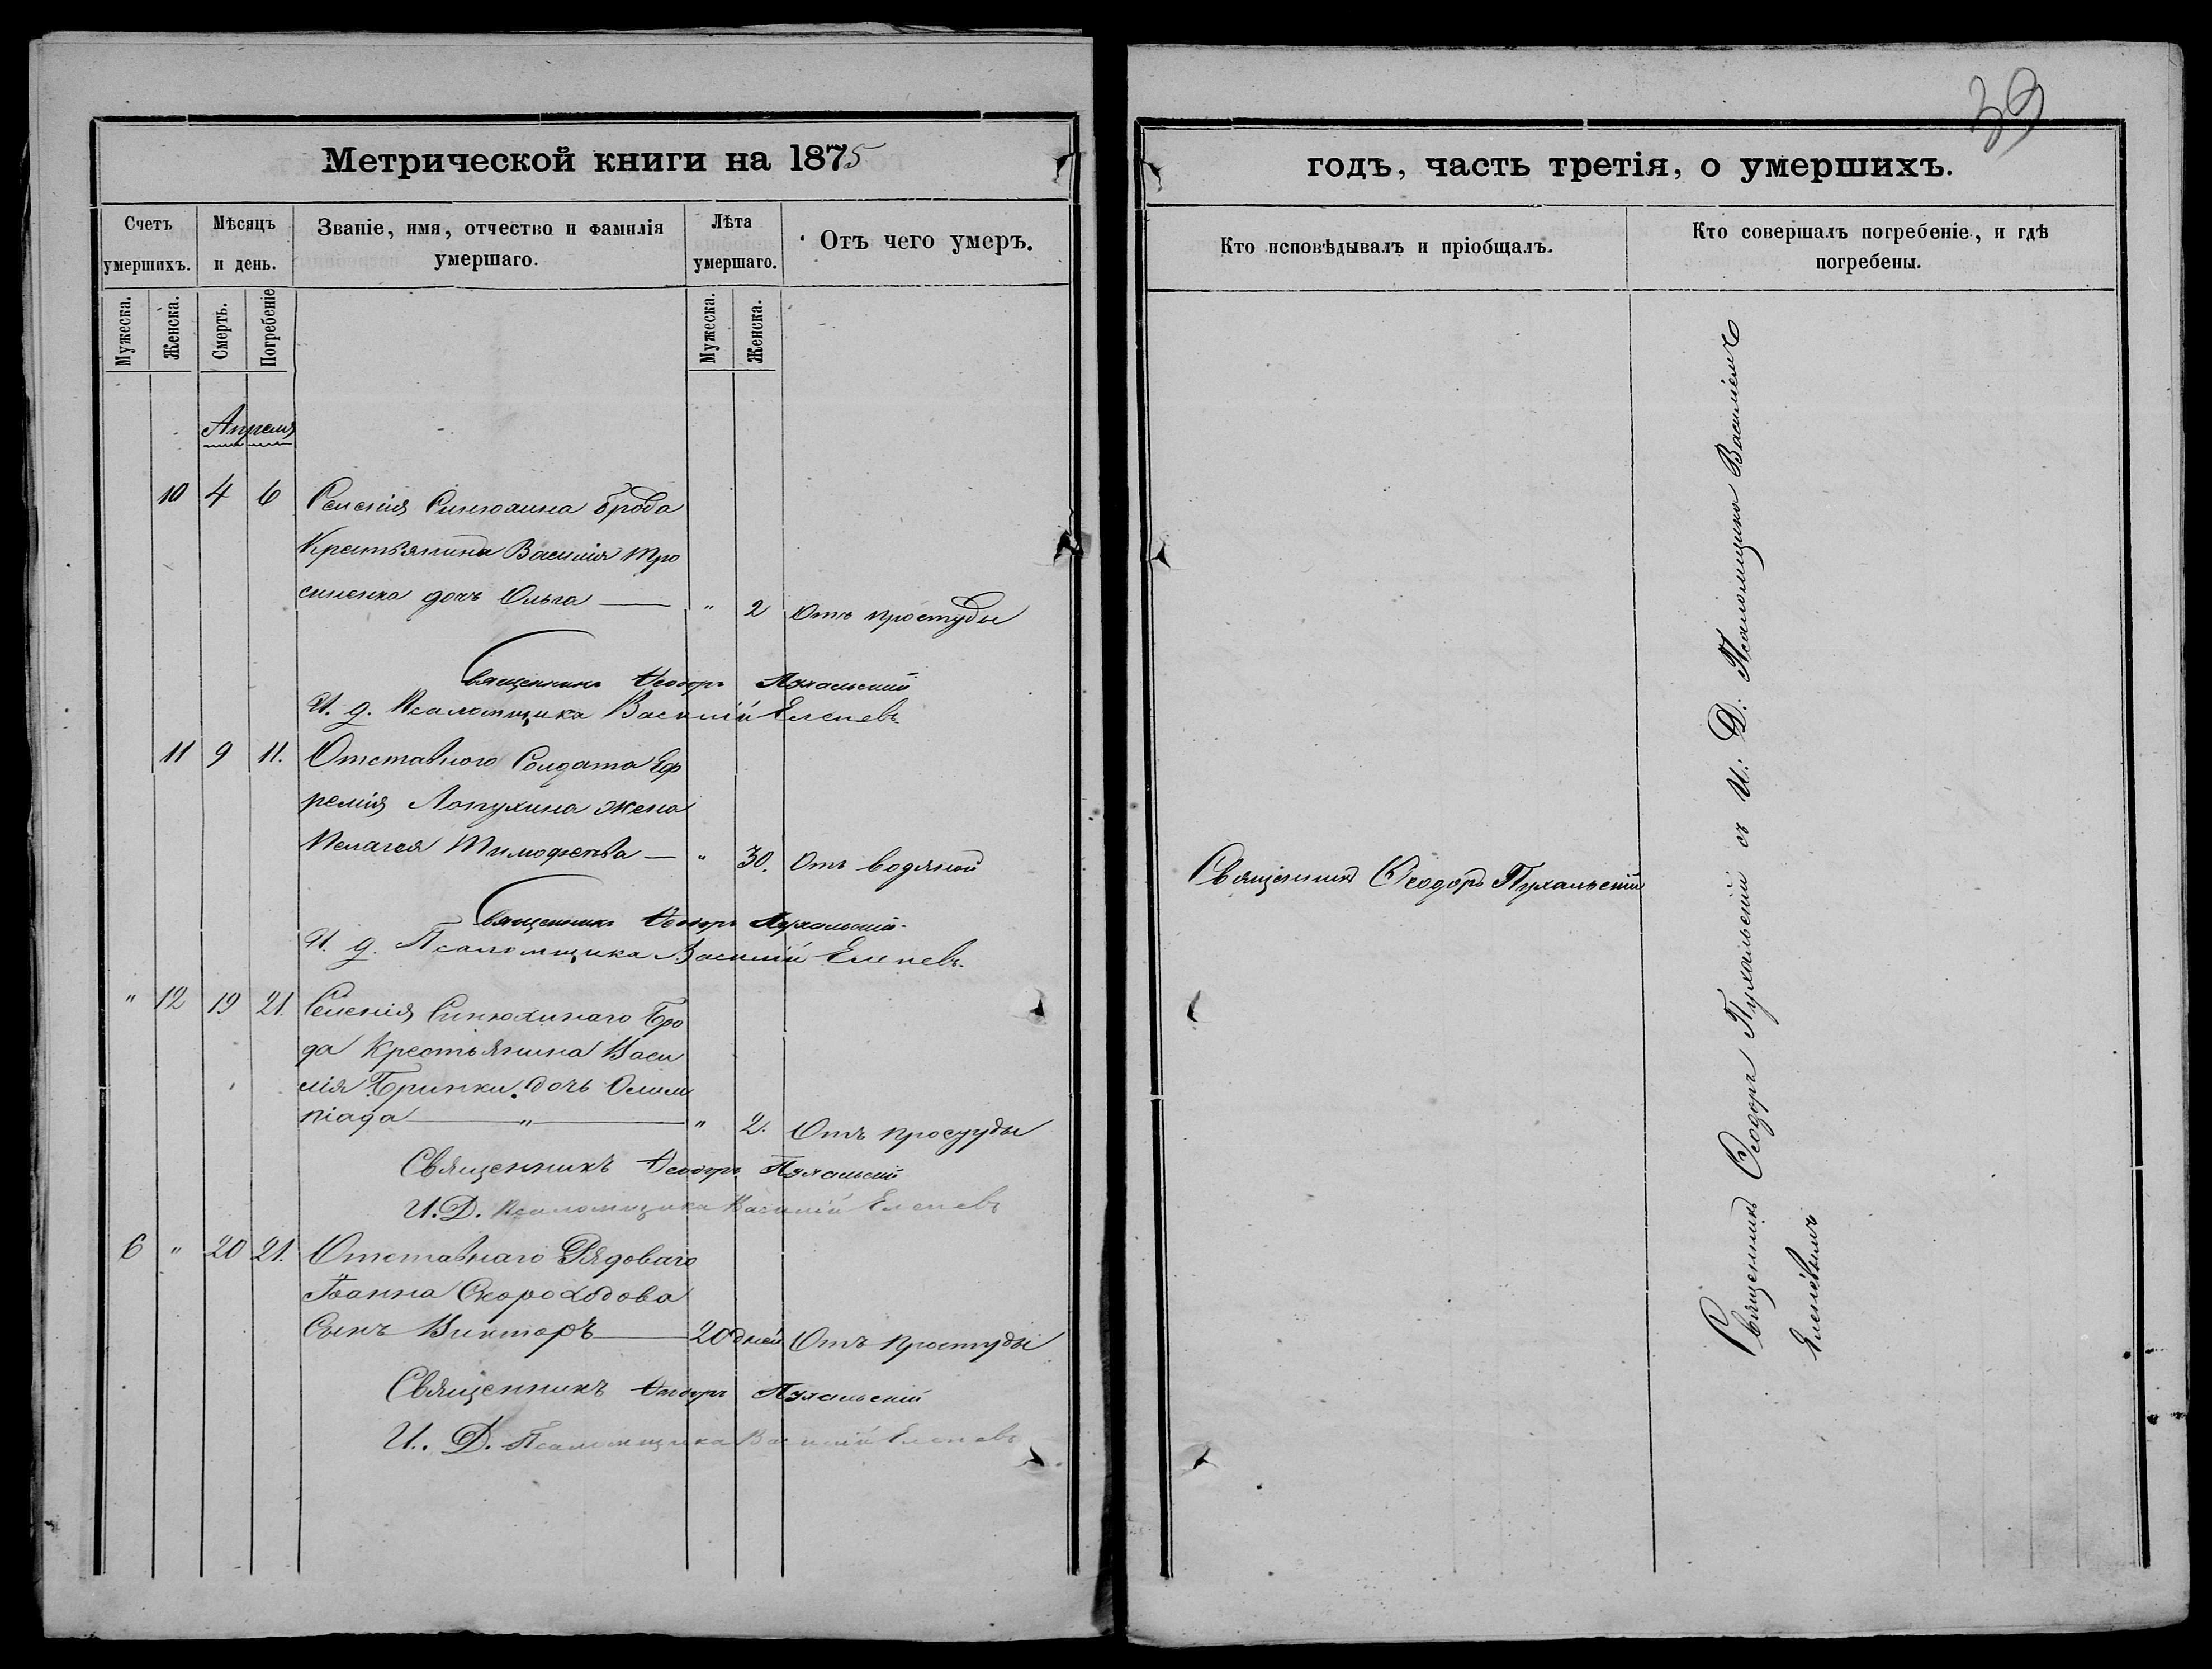 39
Метрической книги на 1875
годъ, часть третія, о умершихъ.
Счетъ умершихъ.
Мѣсяцъ и день.
Званіе, имя, отчество и фамилія умершаго.
Лѣта умершаго.
Отъ чего умеръ.
Кто исповѣдывалъ и пріобщалъ.
Кто совершалъ погребеніе, и гдѣ погребены.
Мужеска.
Женска.
Смерть.
Погребеніе
Мужеска.
Женска.
Апреля
10 4 6 Селенія Синюхина Брода
Крестьянина Василія Тро
синенка дочь Ольга — " 2 Отъ простуды
Священникъ Ѳеодоръ Пухальскій
И. д. Псаломщика Василій Еленевъ
11 9 11. Отставного Солдата Еф
ремія Лопухина жена
Пелагея Тимофеева — " 30. Отъ водяной
Священникъ Ѳеодоръ Пухальскій
И. д. Псаломщика Василій Еленевъ
" 12 19 21. Селенія Синюхинаго Бро
да Крестьянина Васи
лія Гринки дочь Олим
піада — " — " 2. Отъ просууды
Священникъ Ѳеодоръ Пухальскій
И. Д. Псаломщика Василій Еленевъ
6 " 20 21. Отставнаго Рядоваго
Іоанна Скороходова
Сынъ Викторъ — 20 дней Отъ простуды
Священникъ Ѳеодоръ Пухальскій
И. Д. Псаломщика Василій Еленевъ
Священникъ Ѳеодоръ Пухальскій
Священникъ Ѳеодоръ Пухальскій съ И: Д: Псаломщика Василіемъ
Еленевымъ